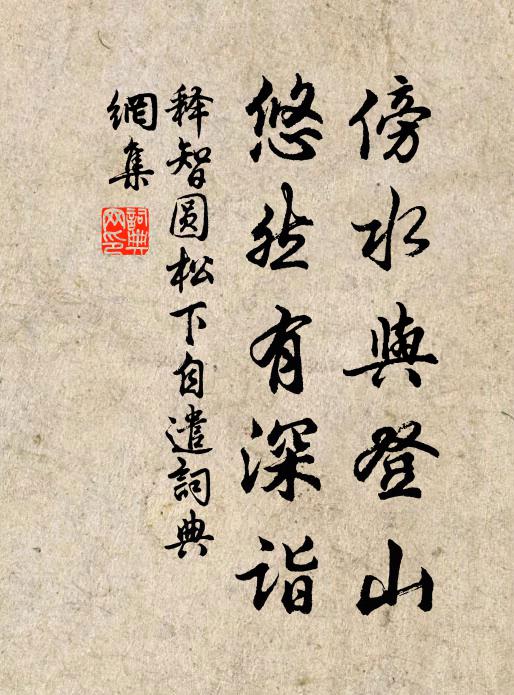 傍水與登山
悠然有深詣
释智圆松下自遣詞典
網集
詞典網印